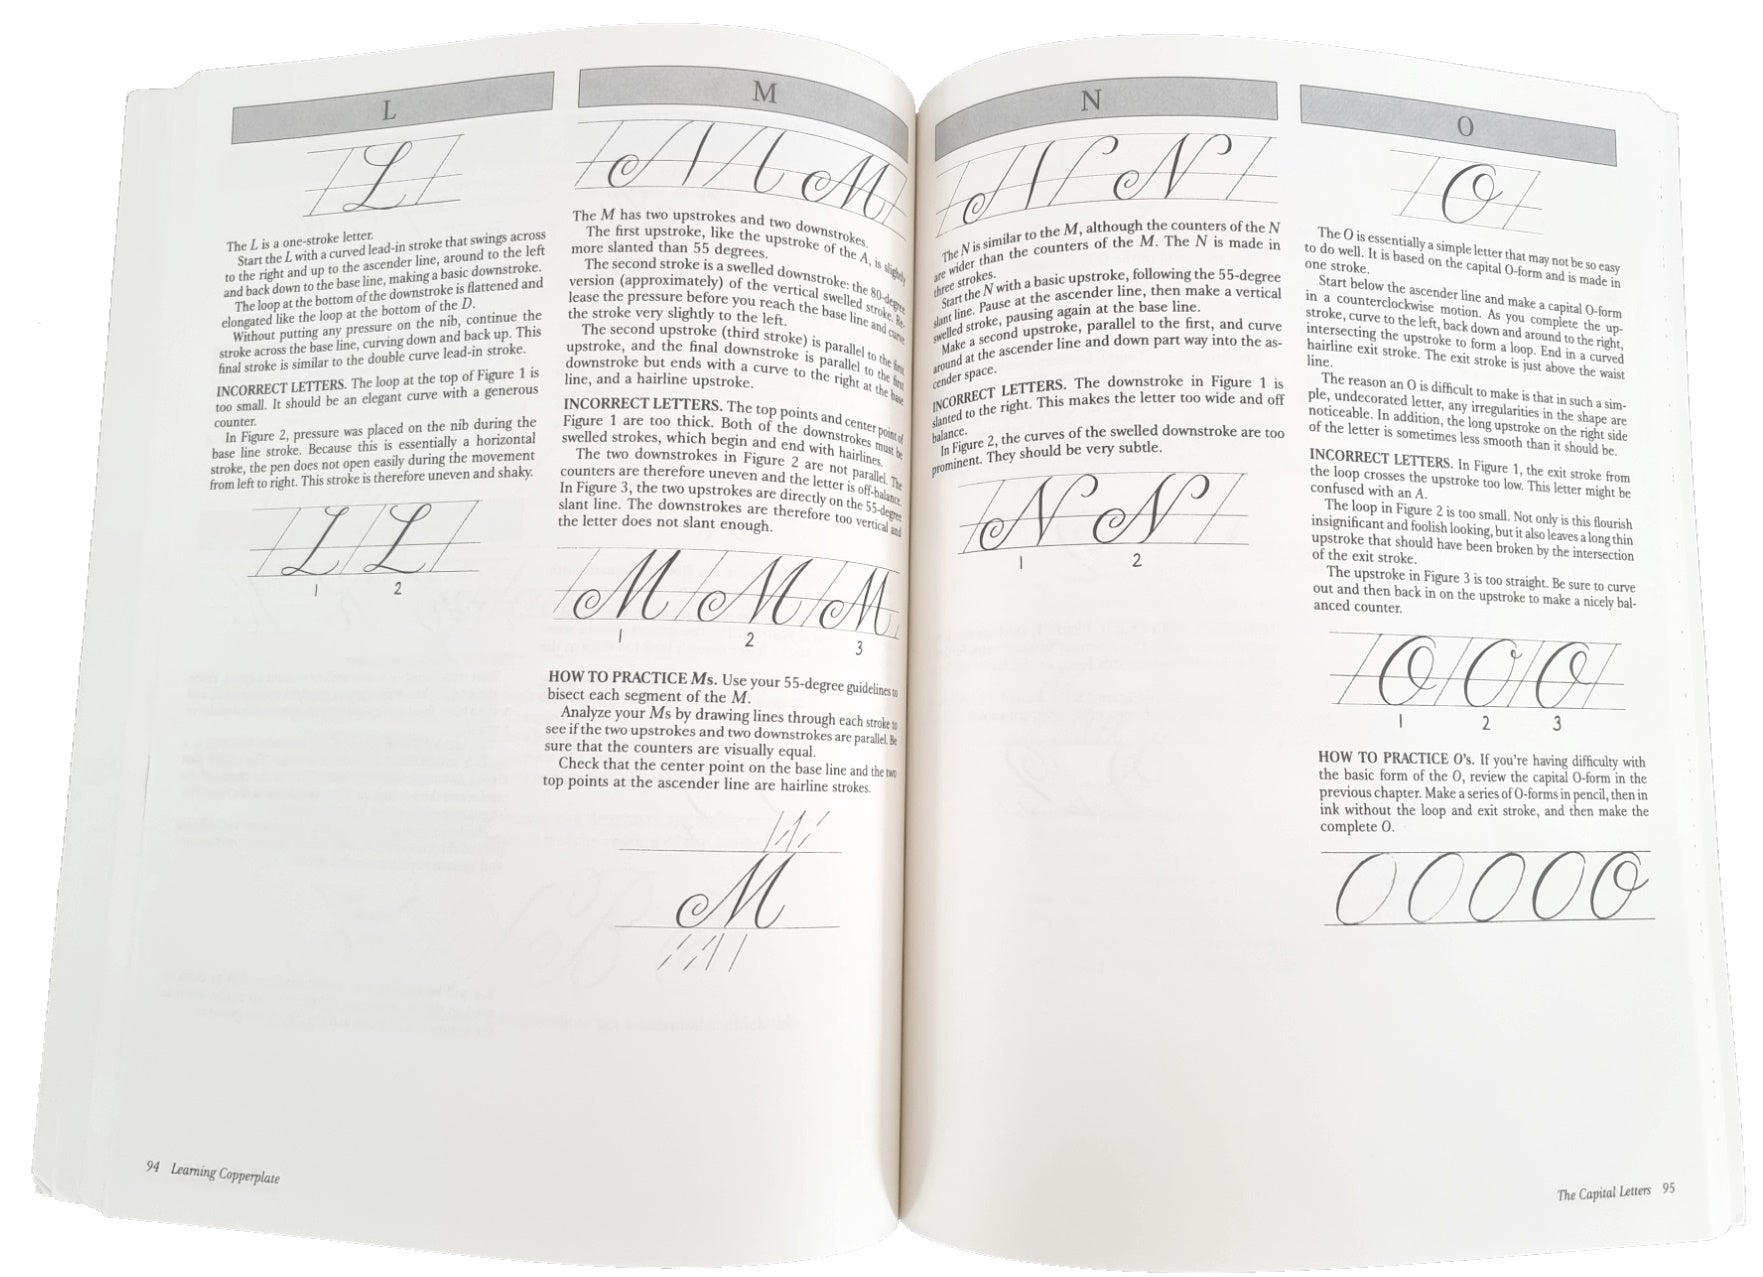 L
The L is a one-stroke letter.
Start the L with a curved lead-in stroke that swings across
to the right and up to the ascender line, around to the left
and back down to the base line, making a basic downstroke.
The loop at the bottom of the downstroke is flattened and
elongated like the loop at the bottom of the D.
Without putting any pressure on the nib, continue the
stroke across the base line, curving down and back up. This
final stroke is similar to the double curve lead-in stroke.
INCORRECT LETTERS. The loop at the top of Figure 1 is
too small. It should be an elegant curve with a generous
counter.
In Figure 2, pressure was placed on the nib during the
base line stroke. Because this is essentially a horizontal
stroke, the pen does not open easily during the movement
from left to right. This stroke is therefore uneven and shaky.
L L
1 2
94 Learning Copperplate
M
M
The M has two upstrokes and two downstrokes.
The first upstroke, like the upstroke of the A, is slightly
more slanted than 55 degrees.
The second stroke is a swelled downstroke: the 80-degree
version (approximately) of the vertical swelled stroke. Re-
lease the pressure before you reach the base line and curve
the stroke very slightly to the left.
The second upstroke (third stroke) is parallel to the first
upstroke, and the final downstroke is parallel to the first
downstroke but ends with a curve to the right at the base
line, and a hairline upstroke.
INCORRECT LETTERS. The top points and center point of
Figure 1 are too thick. Both of the downstrokes must be
swelled strokes, which begin and end with hairlines.
The two downstrokes in Figure 2 are not parallel. The
counters are therefore uneven and the letter is off-balance.
In Figure 3, the two upstrokes are directly on the 55-degree
slant line. The downstrokes are therefore too vertical and
the letter does not slant enough.
M M M
1 2 3
HOW TO PRACTICE Ms. Use your 55-degree guidelines to
bisect each segment of the M.
Analyze your Ms by drawing lines through each stroke to
see if the two upstrokes and two downstrokes are parallel. Be
sure that the counters are visually equal.
Check that the center point on the base line and the two
top points at the ascender line are hairline strokes.
M
N
N
The N is similar to the M, although the counters of the N
are wider than the counters of the M. The N is made in
three strokes.
Start the N with a basic upstroke, following the 55-degree
slant line. Pause at the ascender line, then make a vertical
swelled stroke, pausing again at the base line.
Make a second upstroke, parallel to the first, and curve
around at the ascender line and down part way into the as-
cender space.
INCORRECT LETTERS. The downstroke in Figure 1 is
slanted to the right. This makes the letter too wide and off
balance.
In Figure 2, the curves of the swelled downstroke are too
prominent. They should be very subtle.
N N
1 2
O
O
The O is essentially a simple letter that may not be so easy
to do well. It is based on the capital O-form and is made in
one stroke.
Start below the ascender line and make a capital O-form
in a counterclockwise motion. As you complete the up-
stroke, curve to the left, back down and around to the right,
intersecting the upstroke to form a loop. End in a curved
hairline exit stroke. The exit stroke is just above the waist
line.
The reason an O is difficult to make is that in such a sim-
ple, undecorated letter, any irregularities in the shape are
noticeable. In addition, the long upstroke on the right side
of the letter is sometimes less smooth than it should be.
INCORRECT LETTERS. In Figure 1, the exit stroke from
the loop crosses the upstroke too low. This letter might be
confused with an A.
The loop in Figure 2 is too small. Not only is this flourish
insignificant and foolish looking, but it also leaves a long thin
upstroke that should have been broken by the intersection
of the exit stroke.
The upstroke in Figure 3 is too straight. Be sure to curve
out and then back in on the upstroke to make a nicely bal-
anced counter.
O O O
1 2 3
HOW TO PRACTICE O's. If you're having difficulty with
the basic form of the O, review the capital O-form in the
previous chapter. Make a series of O-forms in pencil, then in
ink without the loop and exit stroke, and then make the
complete O.
O O O O O
The Capital Letters 95